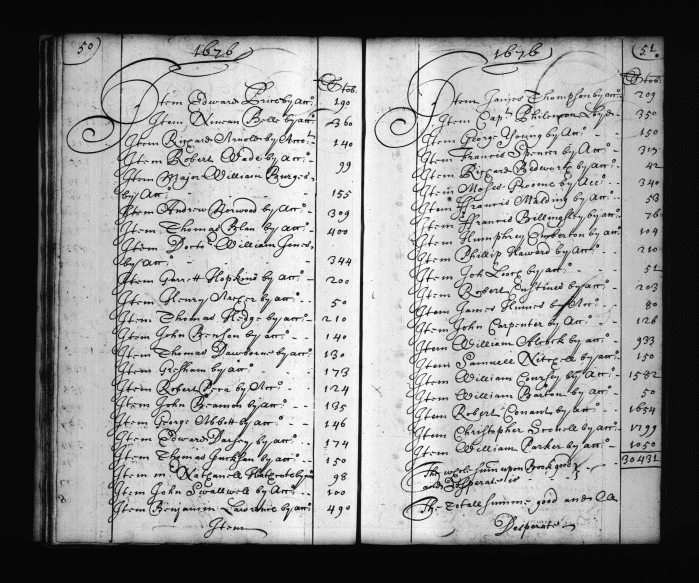 50
1676
ll Tob:
Item Edward Price by acc:o 190
Item Ninean Beale by acc:o 360
Item Rizzard Arnolds by Acco:t 140
Item Robert Wade by Acc:o 99
Item Major William Burges
by Acc:o 155
Item Andrew Norwood by Acc:o 309
Item Thomas Blan by acc:o 400
Item Docto:r William Jones
by Acc:o 344
Item Garrett Hopkins by acc:o 200
Item Henry by acc:o 50
Item Thomas Hedge by acc:o 210
Item John Benson by acc:o 140
Item Thomas Dawborne by acc:o 130
Item Gresham by acc:o 173
Item Robert by Acc:o 124
Item John Beamon by acc:o 135
Item George Abbott by acc:o 146
Item Edward Darsey by acc:o 174
Item Thomas Jackson by acc:o 150
Item m:r Nathanell by 98
Item John Swallwell by Acc:o 100
Item Benjamin Lawrence by acc:o 490
Item
51
1676
ll Tob:
Item James Thompson by acc:o 209
Item Cap:t Philemon Lloyd 350
Item George Young by Acc:o 150
Item Francis Spencer by Acc:o
Item Rizzard Bedworth by acc:o 42
Item Moses Groome by Acc:o 340
Item Francis Malding by acc:o 53
Item Francis Billingsley by acc:o 76
Item Humphrey Emberton by acc:o 104
Item Phillip Howard by Acc:o 210
Item Joh by acc:o 51
Item Robert by acc:o 203
Item James Humes by Acc:o 80
Item John Carpenter by Acc:o 126
Item William Alcock by acc:o 933
Item Samuell by acc:o 150
Item William Coursey by Acc:o 1582
Item William Barton by acc:o 50
Item Robert Conant by acc:o 1654
Item Christopher by acc:o 1799
Item William Parker by acc:o 1050
The whole sum upon Book good
and Desperate is 30431
The Totall summe good and
Desperate